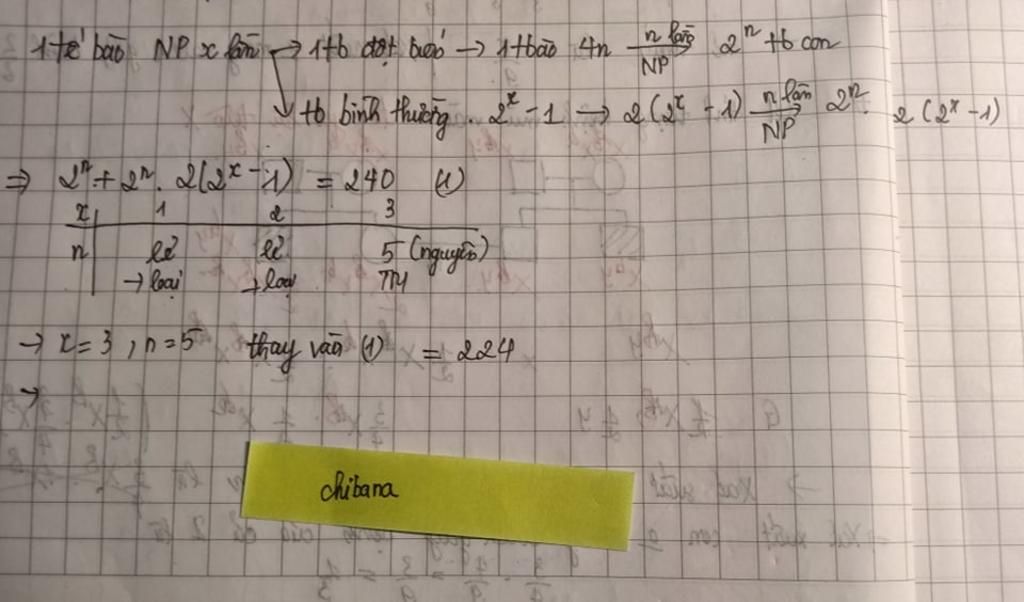 1 tế bào NP x lần → 1 tb đột biến → 1 tbào 4n n lần NP → 2ⁿ tb con
↓ tb bình thường. 2ˣ - 1 → 2(2ˣ - 1) n lần NP → 2ⁿ. 2(2ˣ - 1)
⇒ 2ⁿ + 2ⁿ. 2(2ˣ - 1) = 240 (1)
x 1 2 3
n lẻ lẻ 5 (nguyên)
→ loại → loại TM
→ x = 3, n = 5 thay vào (1) = 224
→
chibana